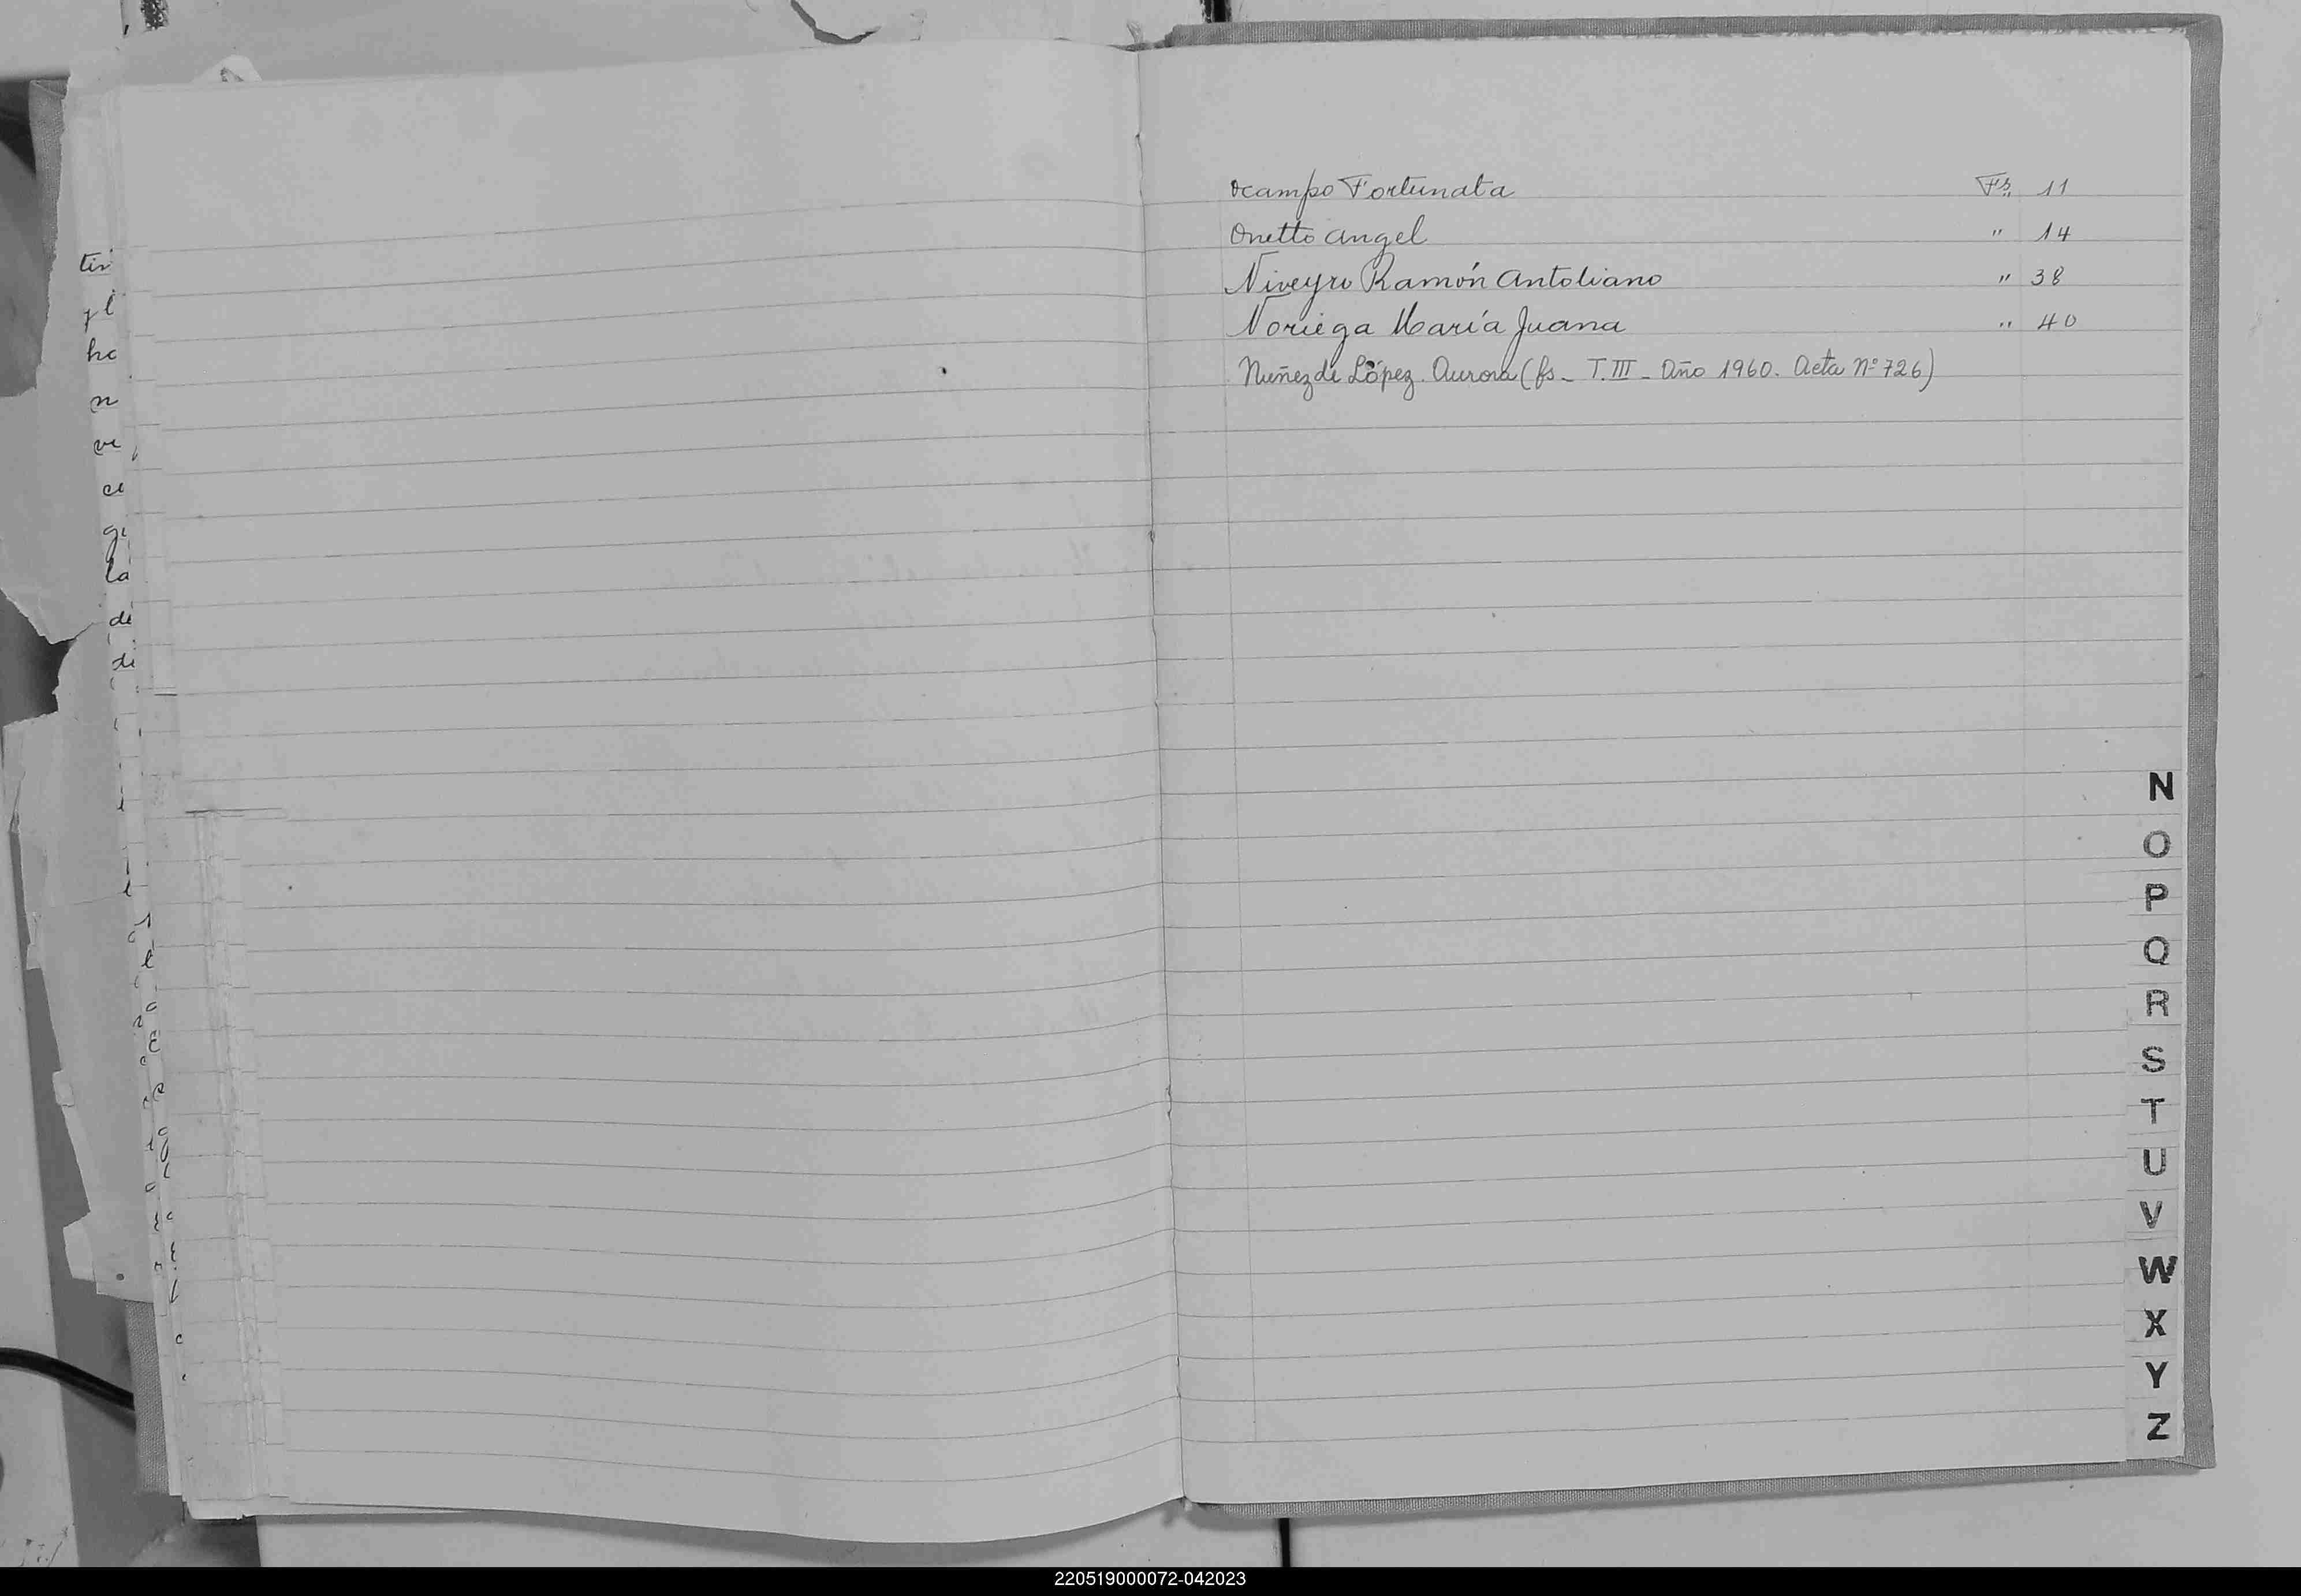 Ocampo Fortunata Fs. 11
Onetto Angel " 14
Niveyro Ramón Antoliano " 38
Noriega María Juana " 40
Nuñez de López. Aurora (fs - T. III - Año 1960. Acta Nº 726)
N
O
P
Q
R
S
T
U
V
W
X
Y
Z
220519000072-042023